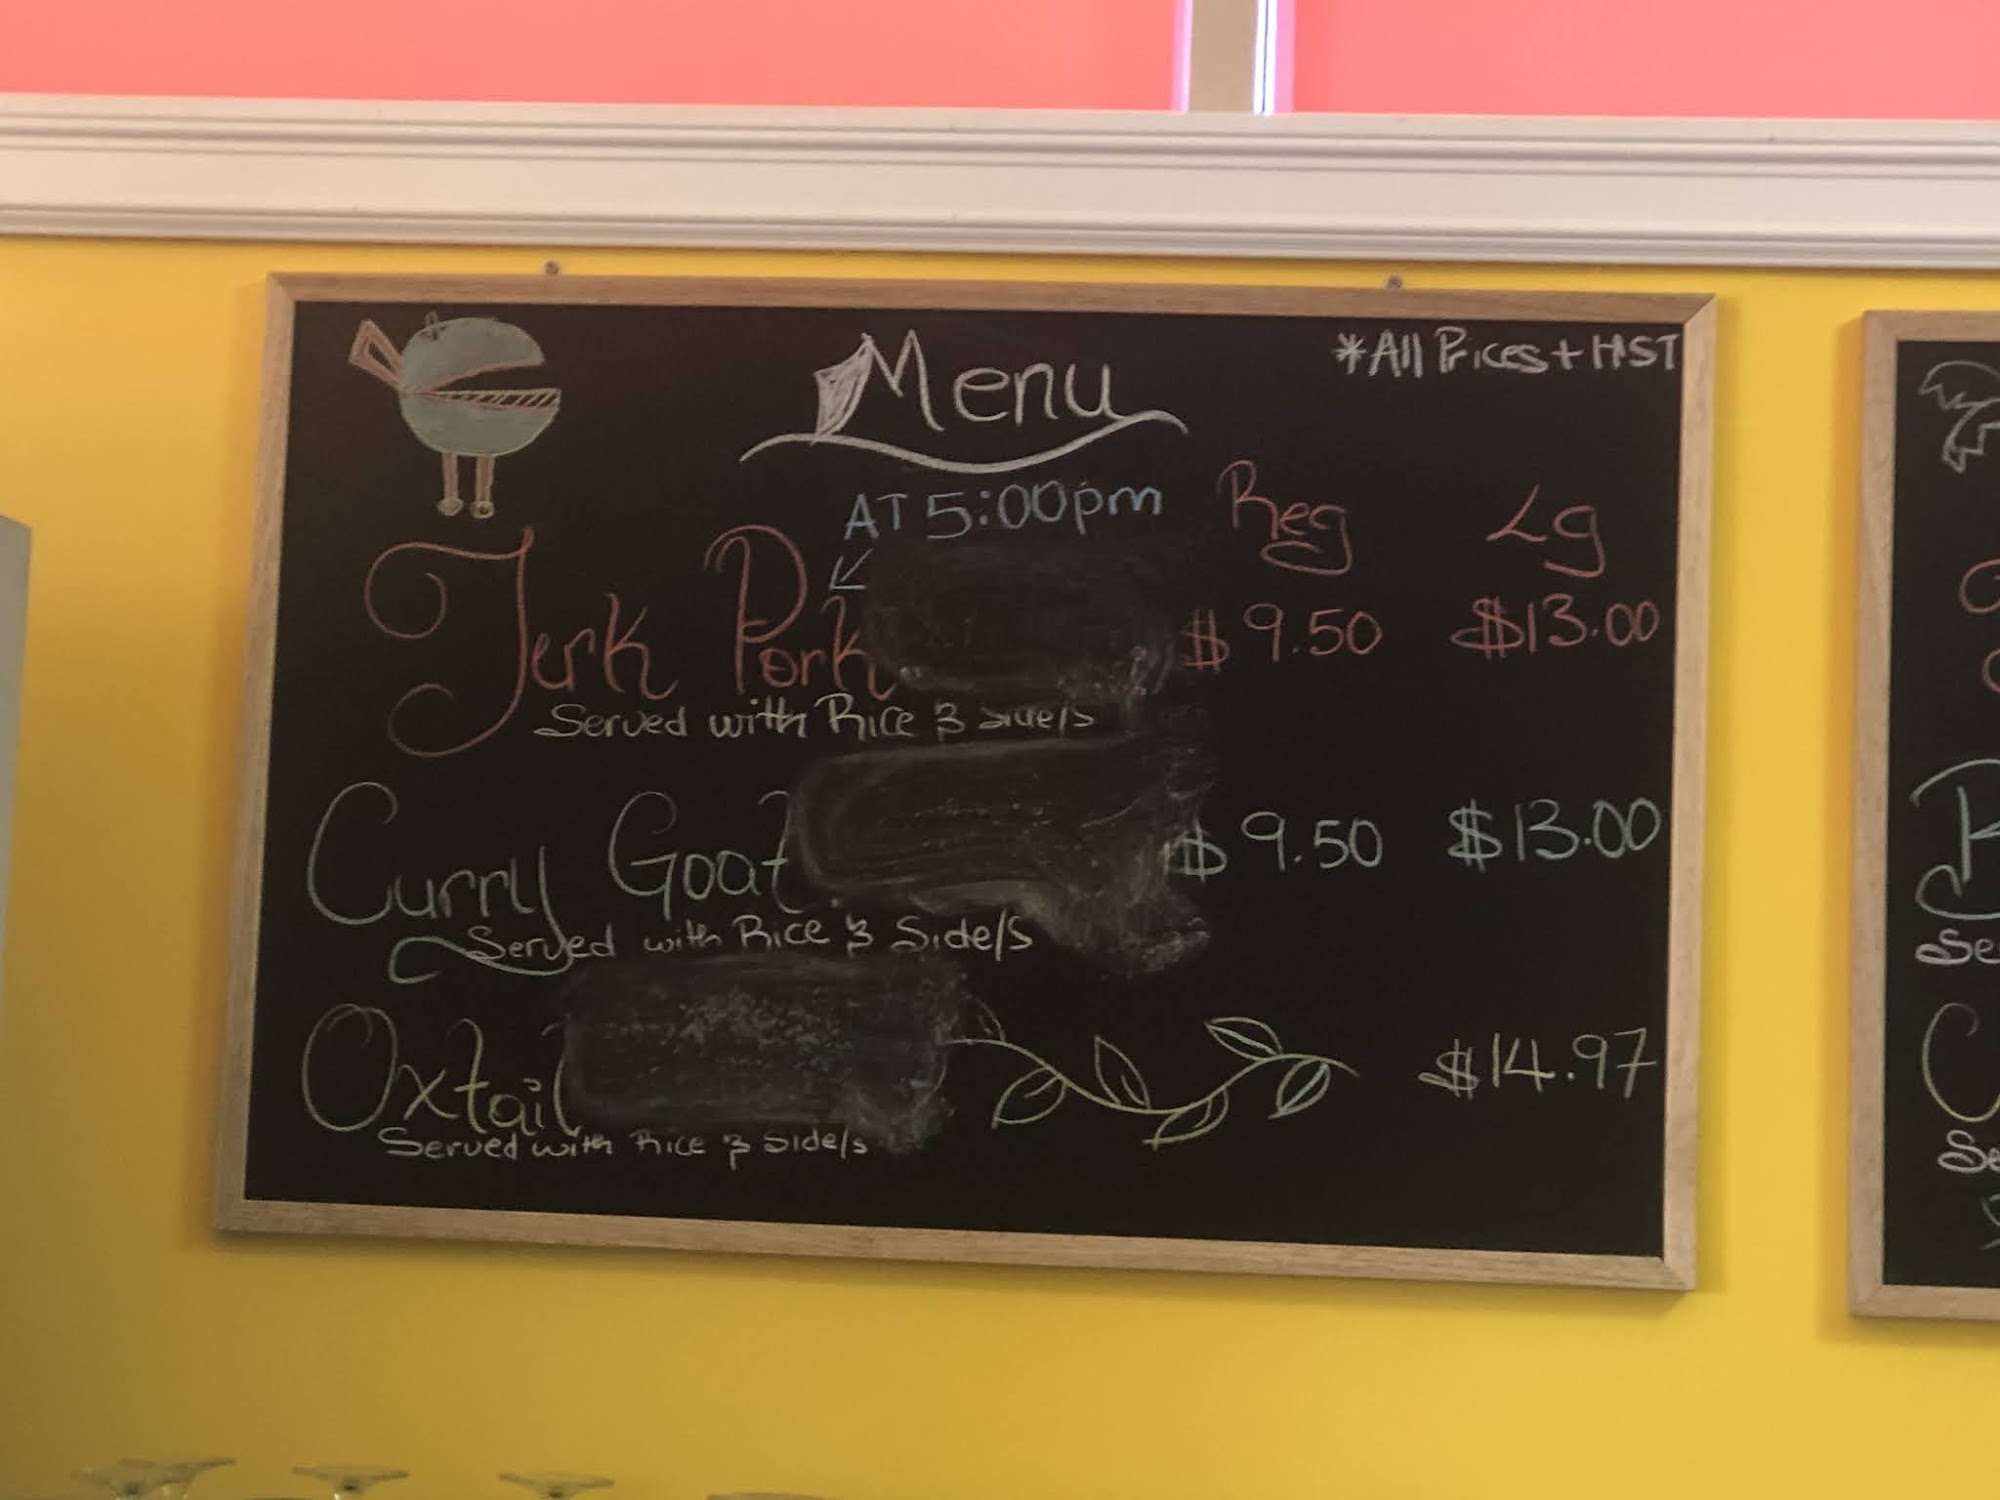 Menu
*All Prices + HST
AT 5:00pm
Reg Lg
Jerk Pork $9.50 $13.00
Served with Rice & Side/s
Curry Goat $9.50 $13.00
Served with Rice & Side/s
Oxtail $14.97
Served with Rice & Side/s